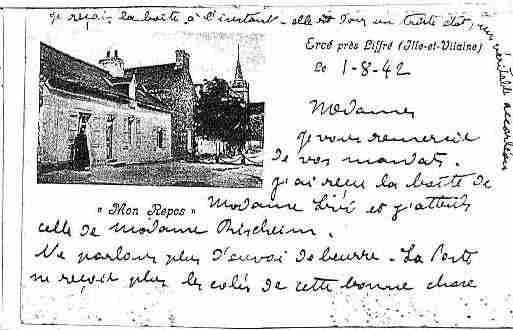 Je reçois la boîte à l'instant - elle est dans un triste état, un véritable accordéon
Ercé près Liffré (Ille-et-Vilaine)
Le 1-8-42
Mesdames
Je vous remercie
de vos mandats.
J'ai reçu la boîte de
Madame Lévi et j'attends
« Mon Repos »
celle de Madame Rischeim.
Ne parlons plus d'envoi de beurre - La Poste
ne reçoit plus les colis de cette bonne chose